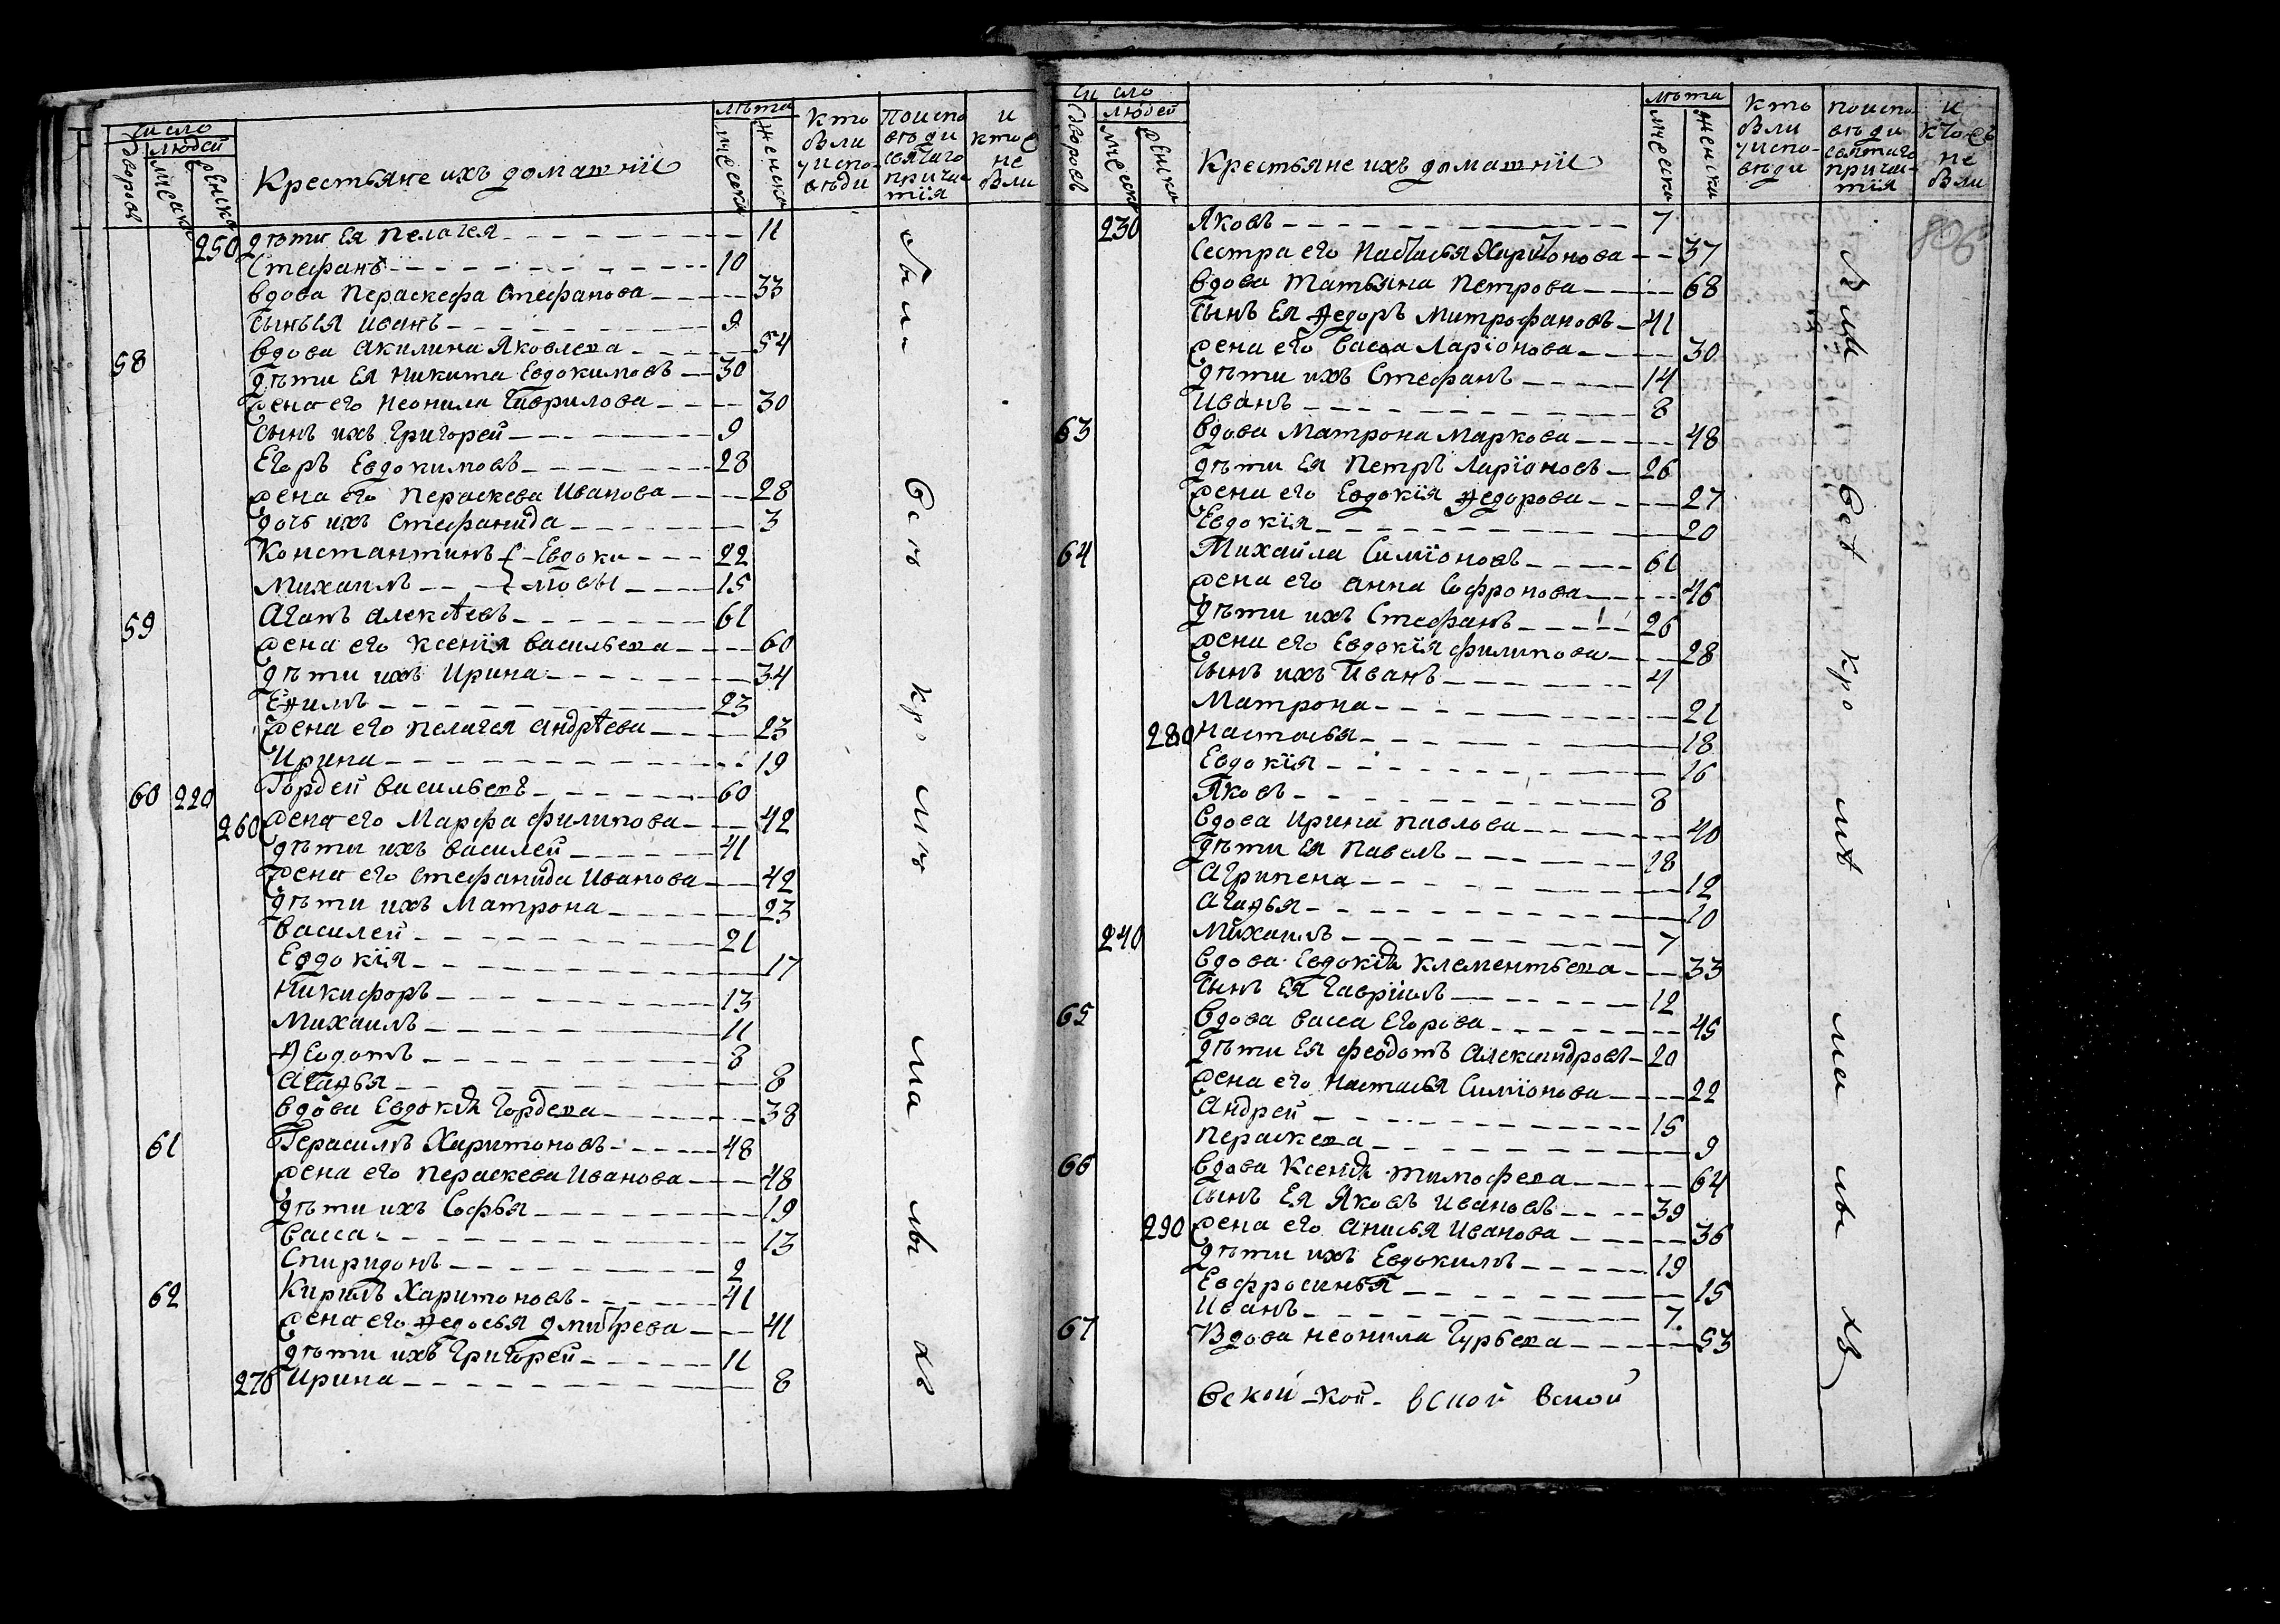 число
людей
дворов
мужеска
женска
Крестьяне ихъ домашнїи
лѣта
мужеска
женска
кто были у исповѣди
по исповѣди святаго причастїя
и кто не были
250 дѣти ея Пелагея 11
Стефанъ 10
вдова Параскефа Стефанова 33
сынъ ея Иванъ 9
58 вдова Акилина Яковлева 54
дѣти ея Никита Евдокимовъ 30
жена его Неонила Гаврилова 30
сынъ ихъ Григорей 9
Егоръ Евдокимовъ 28
жена его Пераскева Иванова 28
дочь ихъ Стефанида 3
Константинъ Евдоки 22
Михаилъ мовы 15
59 Агапъ Алексѣевъ 61
жена его Ксенїя Васильева 60
дѣти ихъ Ирина 34
Ефимъ 23
жена его Пелагея Андрѣева 23
Ирина 19
60 220 Гордей Васильевъ 60
260 жена его Марфа Филипова 42
дѣти ихъ Василей 41
жена его Стефанида Иванова 42
дѣти ихъ Матрона 23
Василей 21
Евдокїя 17
Никифоръ 13
Михаилъ 11
Федотъ 8
Агафья 8
вдова Евдокїя Гордева 38
61 Герасимъ Харитоновъ 48
жена его Пераскева Иванова 48
дѣти ихъ Софья 19
Васса 13
Спиридонъ 2
62 Кирилъ Харитоновъ 41
жена его Федосья Дмитрева 41
дѣти ихъ Григорей 11
270 Ирина 8
были
всѣ
кро
мѣ
ма
лы
хъ
число
людей
дворовъ
мужеска
женска
Крестьяне ихъ домашнїи
лѣта
мужеска
женска
кто были у исповѣди
по исповѣди святаго причастїя
и кто не были
230 Яковъ 7
сестра его Настасья Харитонова 37
вдова Татьяна Петрова 68
сынъ ея Федоръ Митрофановъ 41
жена его Васса Ларїонова 30
дѣти ихъ Стефанъ 14
Иванъ 8
63 вдова Матрона Маркова 48
дѣти ея Петръ Ларїоновъ 26
жена его Евдокїя Федорова 27
Евдокїя 20
64 Михайла Симїоновъ 61
жена его Анна Софронова 46
дѣти ихъ Стефанъ 26
жена его Евдокїя Филипова 28
сынъ ихъ Иванъ 4
Матрона 21
280 Настасья 18
Евдокїя 16
Яковъ 8
вдова Ирина Павлова 40
дѣти ея Павелъ 18
Агрипена 12
Агафья 10
240 Михаилъ 7
вдова Евдокїя Клементьева 33
сынъ ея Гаврїилъ 12
65 вдова Васса Егорова 45
дѣти ея Феодотъ Александровъ 20
жена его Настасья Симїонова 22
Андрей 15
Пераскева 9
66 вдова Ксенїя Тимофева 64
сынъ ея Яковъ Ивановъ 39
290 жена его Анисья Иванова 36
дѣти ихъ Евдокимъ 19
Евфросинья 15
Иванъ 7
67 Вдова Неонила Гурьева 53
были
всѣ
кро
мѣ
ма
лы
хъ